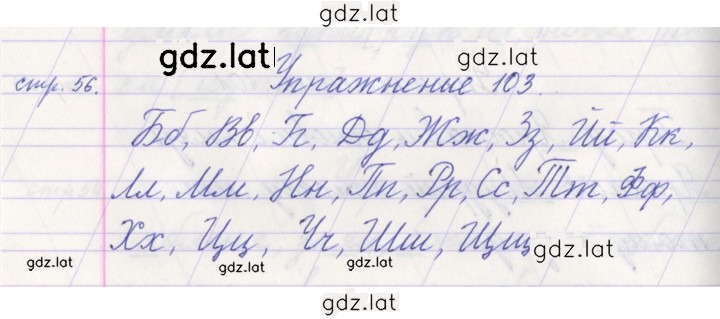 gdz.lat
gdz.lat
gdz.lat
стр. 56. Упражнение 103.
Бб, Вв, Гг, Дд, Жж, Зз, Йй, Кк,
Лл, Мм, Нн, Пп, Рр, Сс, Тт, Фф,
Хх, Цц, Чч, Шш, Щщ
gdz.lat
gdz.lat
gdz.lat
gdz.lat
gdz.lat